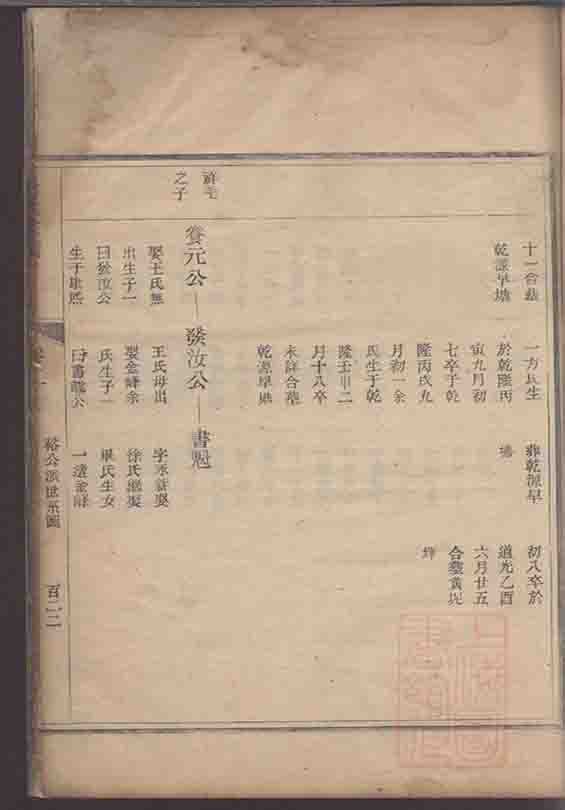 十一合葬
乾源早塘
一方氏生
於乾隆丙
寅九月初
七卒于乾
隆丙戌九
月初一余
氏生于乾
隆壬申二
月十八卒
未詳合葬
乾源早塘
葬乾源早
塘
初八卒於
道光乙酉
六月廿五
合墓黄坭
之子
養元公—發汝公—書魁
娶王氏無
出生子一
曰發汝公
生于康熙
王氏毋出
娶金峰余
氏生子一
曰書龍公
徐氏繼娶
畢氏生女
一適金峰
裕公派世系圖
百二二